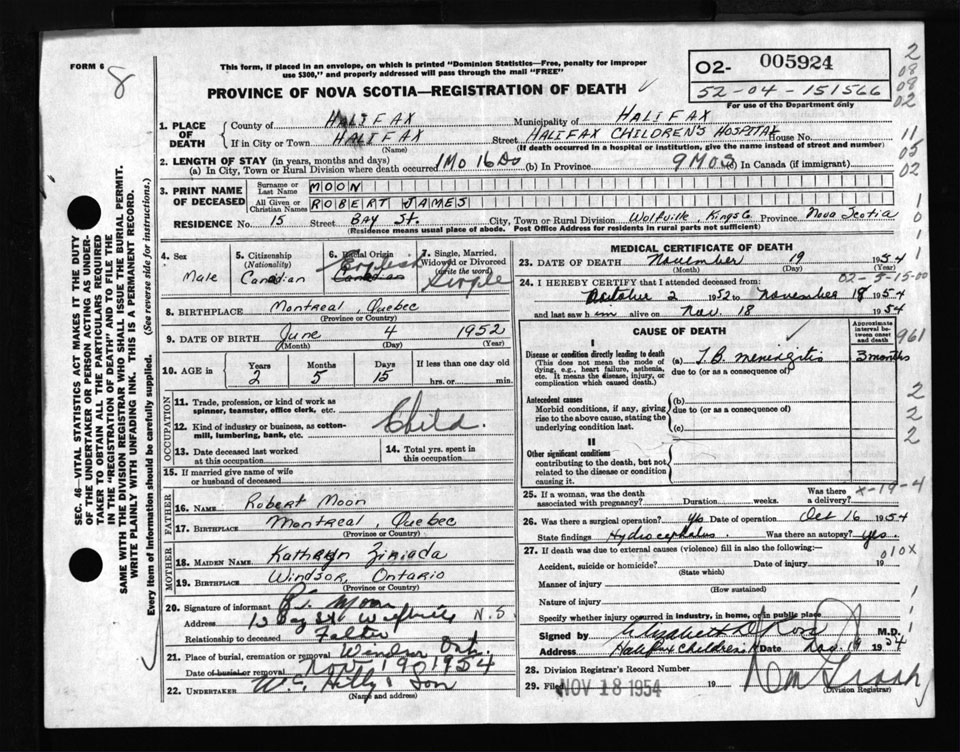 FORM 6
8
This form, if placed in an envelope, on which is printed "Dominion Statistics—Free, penalty for improper
use $300," and properly addressed will pass through the mail "FREE"
PROVINCE OF NOVA SCOTIA—REGISTRATION OF DEATH
02- 005924
52-04-151566
For use of the Department only
1. PLACE OF DEATH
County of HALIFAX Municipality of HALIFAX
If in City or Town HALIFAX Street HALIFAX CHILDREN'S HOSPITAL House No.
(Name) (If death occurred in a hospital or institution, give the name instead of street and number)
2. LENGTH OF STAY (in years, months and days)
(a) In City, Town or Rural Division where death occurred 1 Mo 16 Do (b) In Province 9 MOS (c) In Canada (if immigrant)
3. PRINT NAME OF DECEASED
Surname or Last Name MOON
All Given or Christian Names ROBERT JAMES
RESIDENCE No. 15 Street Bay St. City, Town or Rural Division Wolfville, Kings Co Province Nova Scotia
(Residence means usual place of abode. Post Office Address for residents in rural parts not sufficient)
4. Sex Male
5. Citizenship (Nationality) Canadian
6. Racial Origin English Canadian
7. Single, Married, Widowed or Divorced (write the word) Single
8. BIRTHPLACE Montreal, Quebec
(Province or Country)
9. DATE OF BIRTH June 4 1952
(Month) (Day) (Year)
10. AGE in Years 2 Months 5 Days 15 If less than one day old hrs. or min.
OCCUPATION
11. Trade, profession or kind of work as spinner, teamster, office clerk, etc.
Child.
12. Kind of industry or business, as cotton-mill, lumbering, bank, etc.
13. Date deceased last worked at this occupation
14. Total yrs. spent in this occupation
15. If married give name of wife or husband of deceased
FATHER
16. Name Robert Moon
17. Birthplace Montreal, Quebec
(Province or Country)
MOTHER
18. MAIDEN NAME Kathryn Ziriada
19. BIRTHPLACE Windsor, Ontario
(Province or Country)
20. Signature of informant R. J. Moon
Address 15 Bay St. Wolfville N.S.
Relationship to deceased Father
21. Place of burial, cremation or removal Windsor Ont.
Date of burial or removal Nov 19 1954
22. UNDERTAKER
(Name and address)
MEDICAL CERTIFICATE OF DEATH
23. DATE OF DEATH November 19 1954
(Month) (Day) (Year)
02-5-15-00
24. I HEREBY CERTIFY that I attended deceased from:
October 2 1952 to November 18 1954
and last saw him alive on Nov. 18 1954
CAUSE OF DEATH
Approximate interval between onset and death
961
I
Disease or condition directly leading to death
(This does not mean the mode of dying, e.g., heart failure, asthenia, etc. It means the disease, injury, or complication which caused death.)
(a) T.B. meningitis 3 months
due to (or as a consequence of)
Antecedent causes
Morbid conditions, if any, giving rise to the above cause, stating the underlying condition last.
(b)
due to (or as a consequence of)
(c)
II
Other significant conditions
contributing to the death, but not related to the disease or condition causing it.
25. If a woman, was the death associated with pregnancy? Duration weeks. Was there a delivery?
x-19-4
26. Was there a surgical operation? yes Date of operation Oct 16 1954
State findings Hydrocephalus. Was there an autopsy? yes.
27. If death was due to external causes (violence) fill in also the following:—
010X
Accident, suicide or homicide? Date of injury 19
(State which)
Manner of injury
(How sustained)
Nature of injury
Specify whether injury occurred in industry, in home, or in public place
Signed by Elizabeth D. Ross M.D.
Address Halifax Children's H Date Nov. 19 1954
28. Division Registrar's Record Number
29. Filed NOV 18 1954 19
(Division Registrar)
2
08
08
02
11
05
02
1
0
1
1
2
2
2
1
1
SEC. 46—VITAL STATISTICS ACT MAKES IT THE DUTY
OF THE UNDERTAKER OR PERSON ACTING AS UNDER-
TAKER TO OBTAIN ALL THE PARTICULARS REQUIRED
IN THE "REGISTRATION OF DEATH" AND TO FILE THE
SAME WITH THE DIVISION REGISTRAR WHO SHALL ISSUE THE BURIAL PERMIT.
WRITE PLAINLY WITH UNFADING INK. THIS IS A PERMANENT RECORD.
Every item of Information should be carefully supplied. (See reverse side for instructions.)